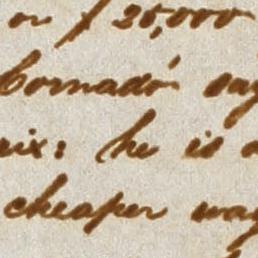 or $25,000
Cornado say
ix: he is a
cheaper way